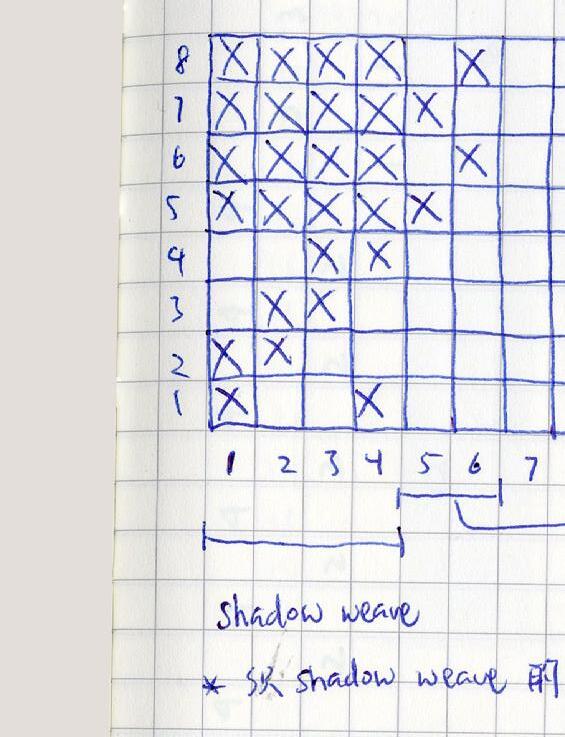 8 X X X X X
7 X X X X X
6 X X X X X
5 X X X X X
4 X X
3 X X
2 X X
1 X X
1 2 3 4 5 6 7
shadow weave
* 织 shadow weave 的